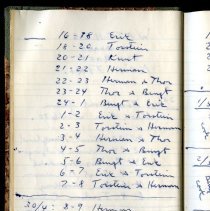 16-18 Eric
18-20 Torstein
20-21 Knut
21-22 Herman
22-23 Herman & Thor
23-24 Thor & Bengt
24-1 Bengt & Eric
1-2 Eric & Torstein
2-3 Torstein & Herman
3-4 Herman & Thor
4-5 Thor & Bengt
5-6 Bengt & Eric
6-7 Eric & Torstein
7-8 Torstein & Herman
30/4: 8-9 Herman